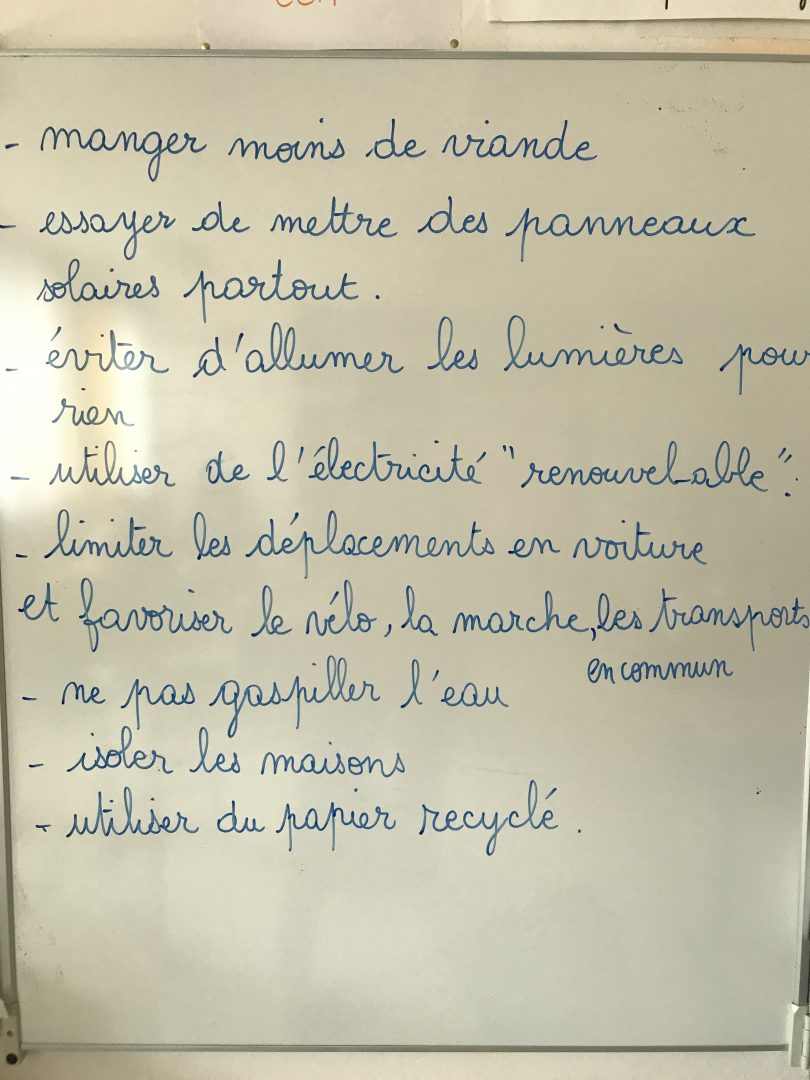 - manger moins de viande
- essayer de mettre des panneaux
solaires partout.
- éviter d'allumer les lumières pour
rien
- utiliser de l'électricité "renouvel-able".
- limiter les déplacements en voiture
et favoriser le vélo, la marche, les transports
en commun
- ne pas gaspiller l'eau
- isoler les maisons
- utiliser du papier recyclé.